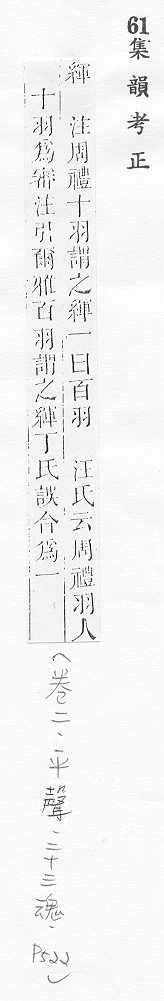 61集韻考正
緷 注周禮十羽謂之緷一曰百羽 汪氏云周禮羽人
十羽爲審注引爾雅百羽謂之緷丁氏誤合爲一
(卷二．平聲．二十三魂．P522)